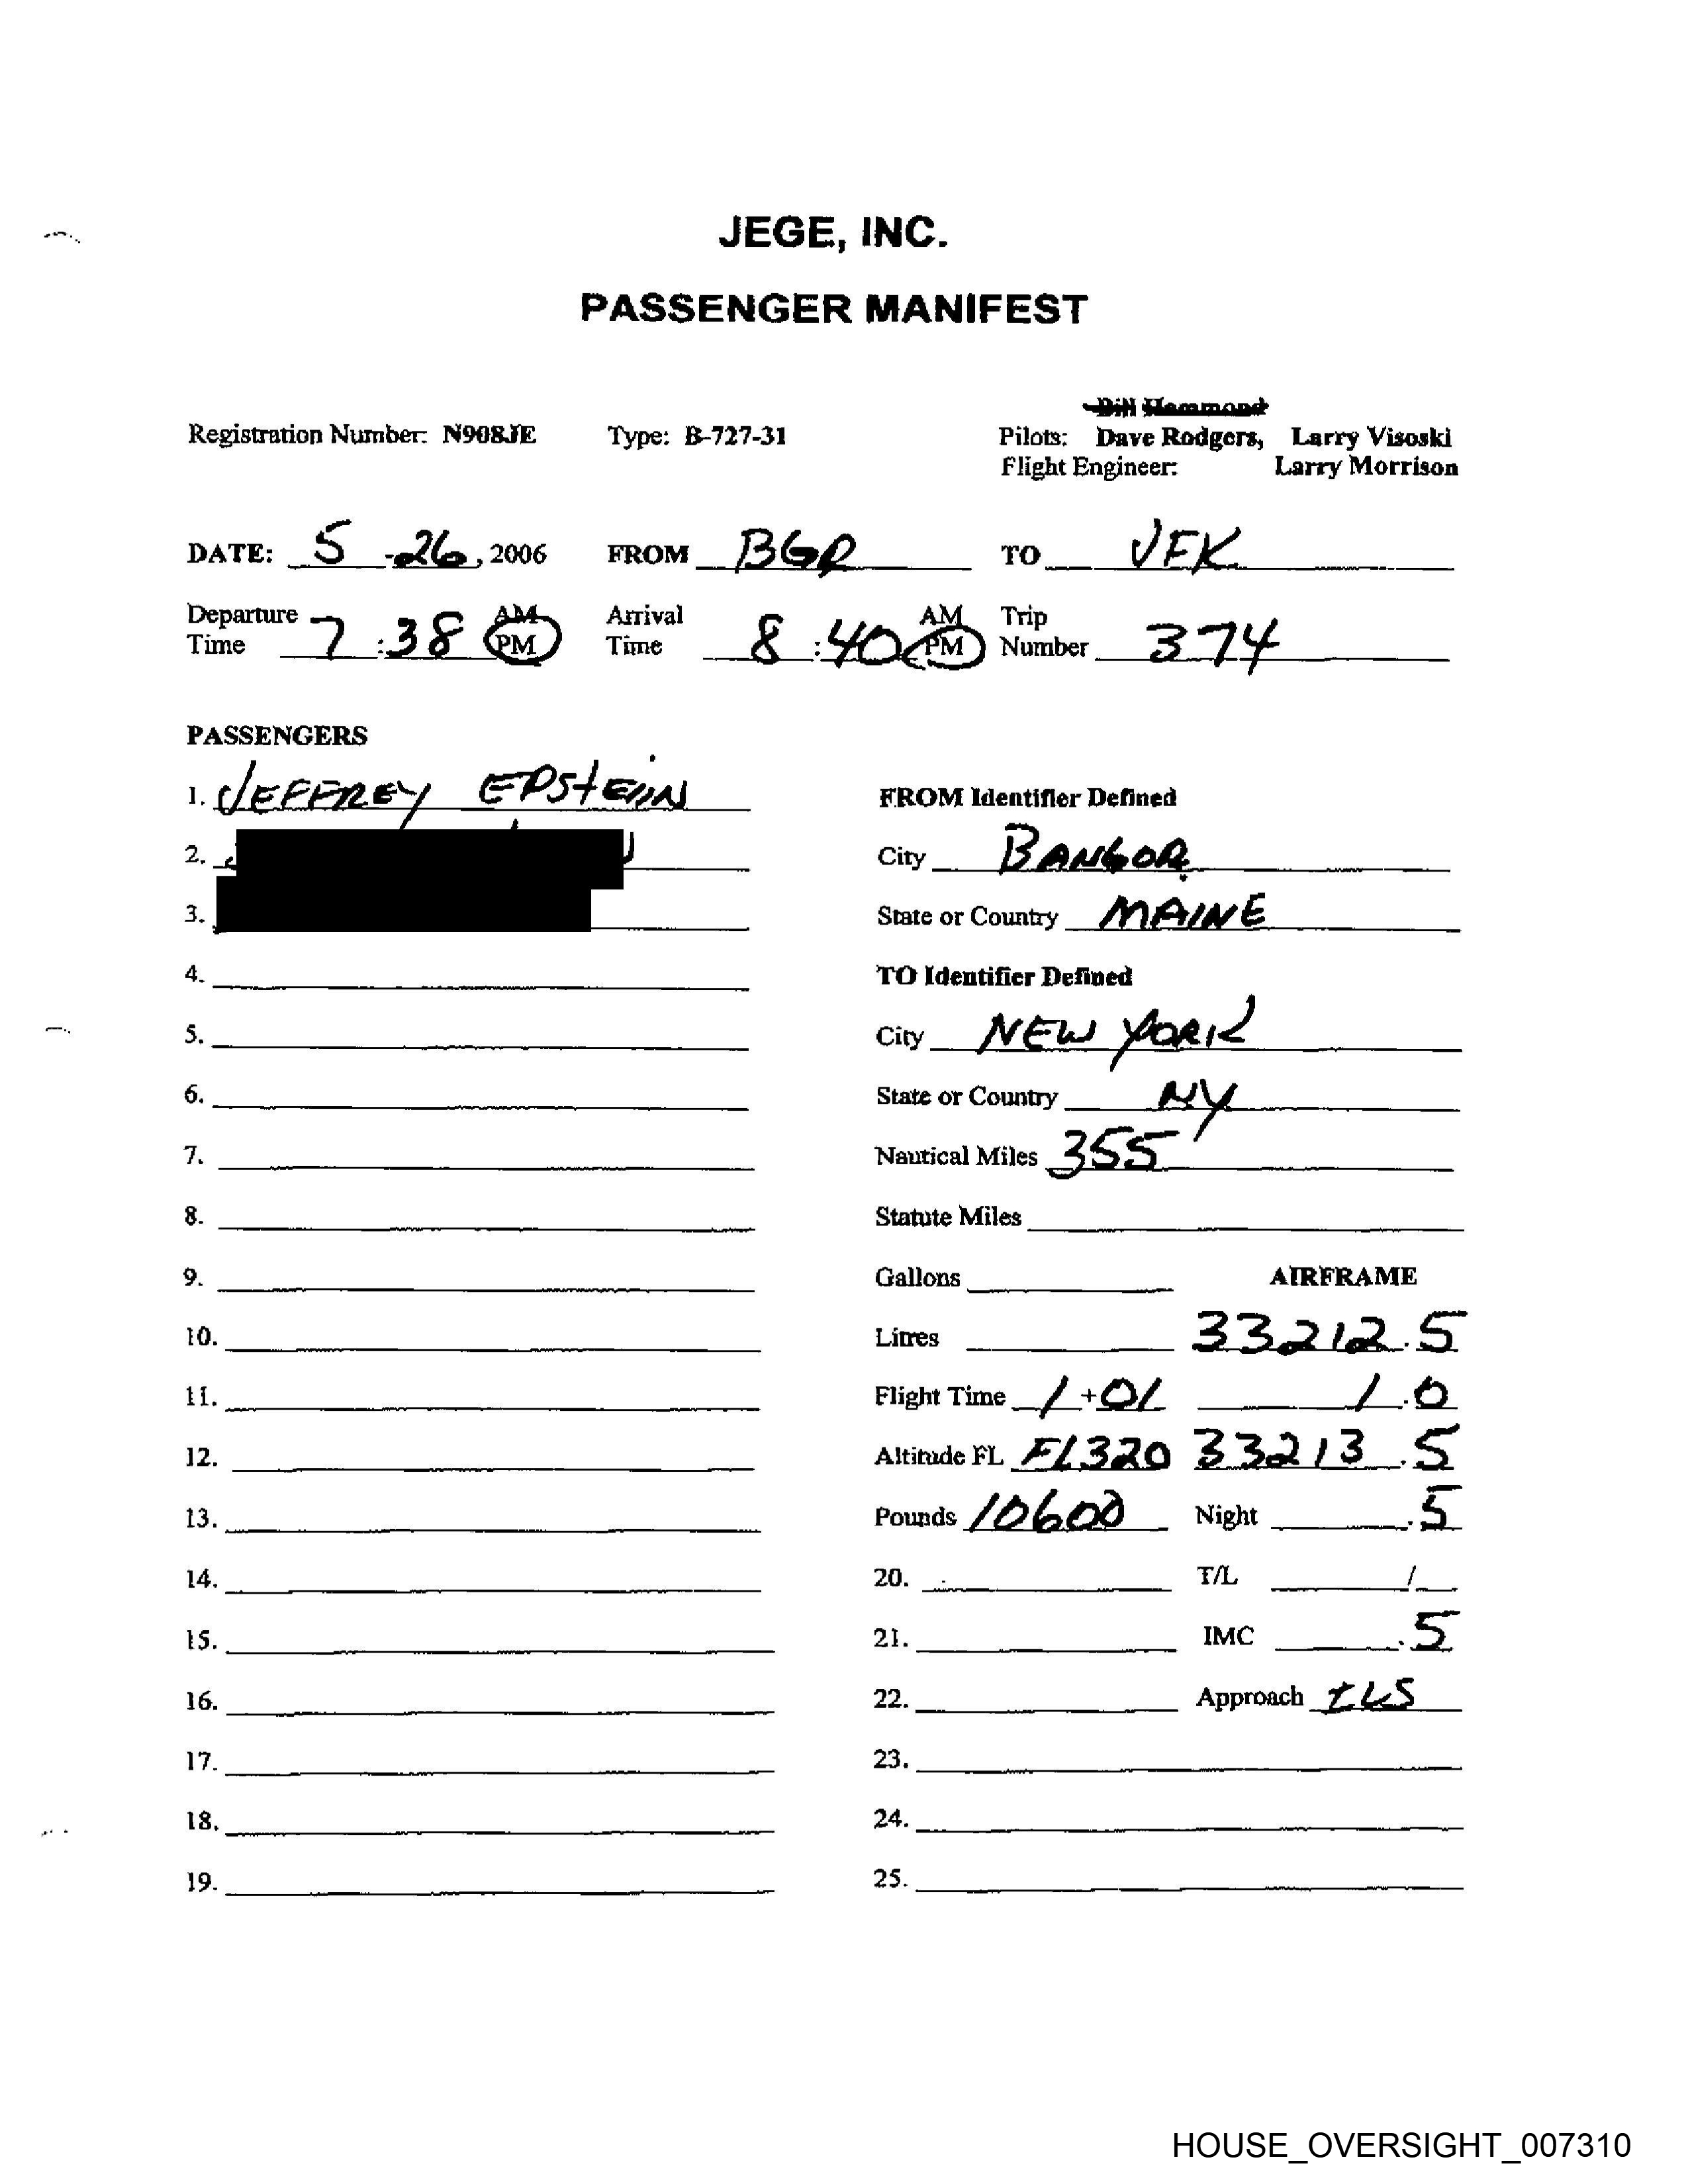 JEGE, INC.
PASSENGER MANIFEST
Bill Hammond
Registration Number: N908JE Type: B-727-31 Pilots: Dave Rodgers, Larry Visoski
Flight Engineer: Larry Morrison
DATE: 5 -26, 2006 FROM BGR TO JFK
Departure Time 7:38 AM PM Arrival Time 8:40 AM PM Trip Number 374
PASSENGERS
1. JEFFREY EPSTEIN FROM Identifier Defined
2. City BANGOR
3. State or Country MAINE
4. TO Identifier Defined
5. City NEW YORK
6. State or Country NY
7. Nautical Miles 355
8. Statute Miles
9. Gallons AIRFRAME
10. Litres 33212.5
11. Flight Time 1+01 1.0
12. Altitude FL FL320 33213.5
13. Pounds 10600 Night .5
14. 20. T/L /
15. 21. IMC .5
16. 22. Approach ILS
17. 23.
18. 24.
19. 25.
HOUSE_OVERSIGHT_007310